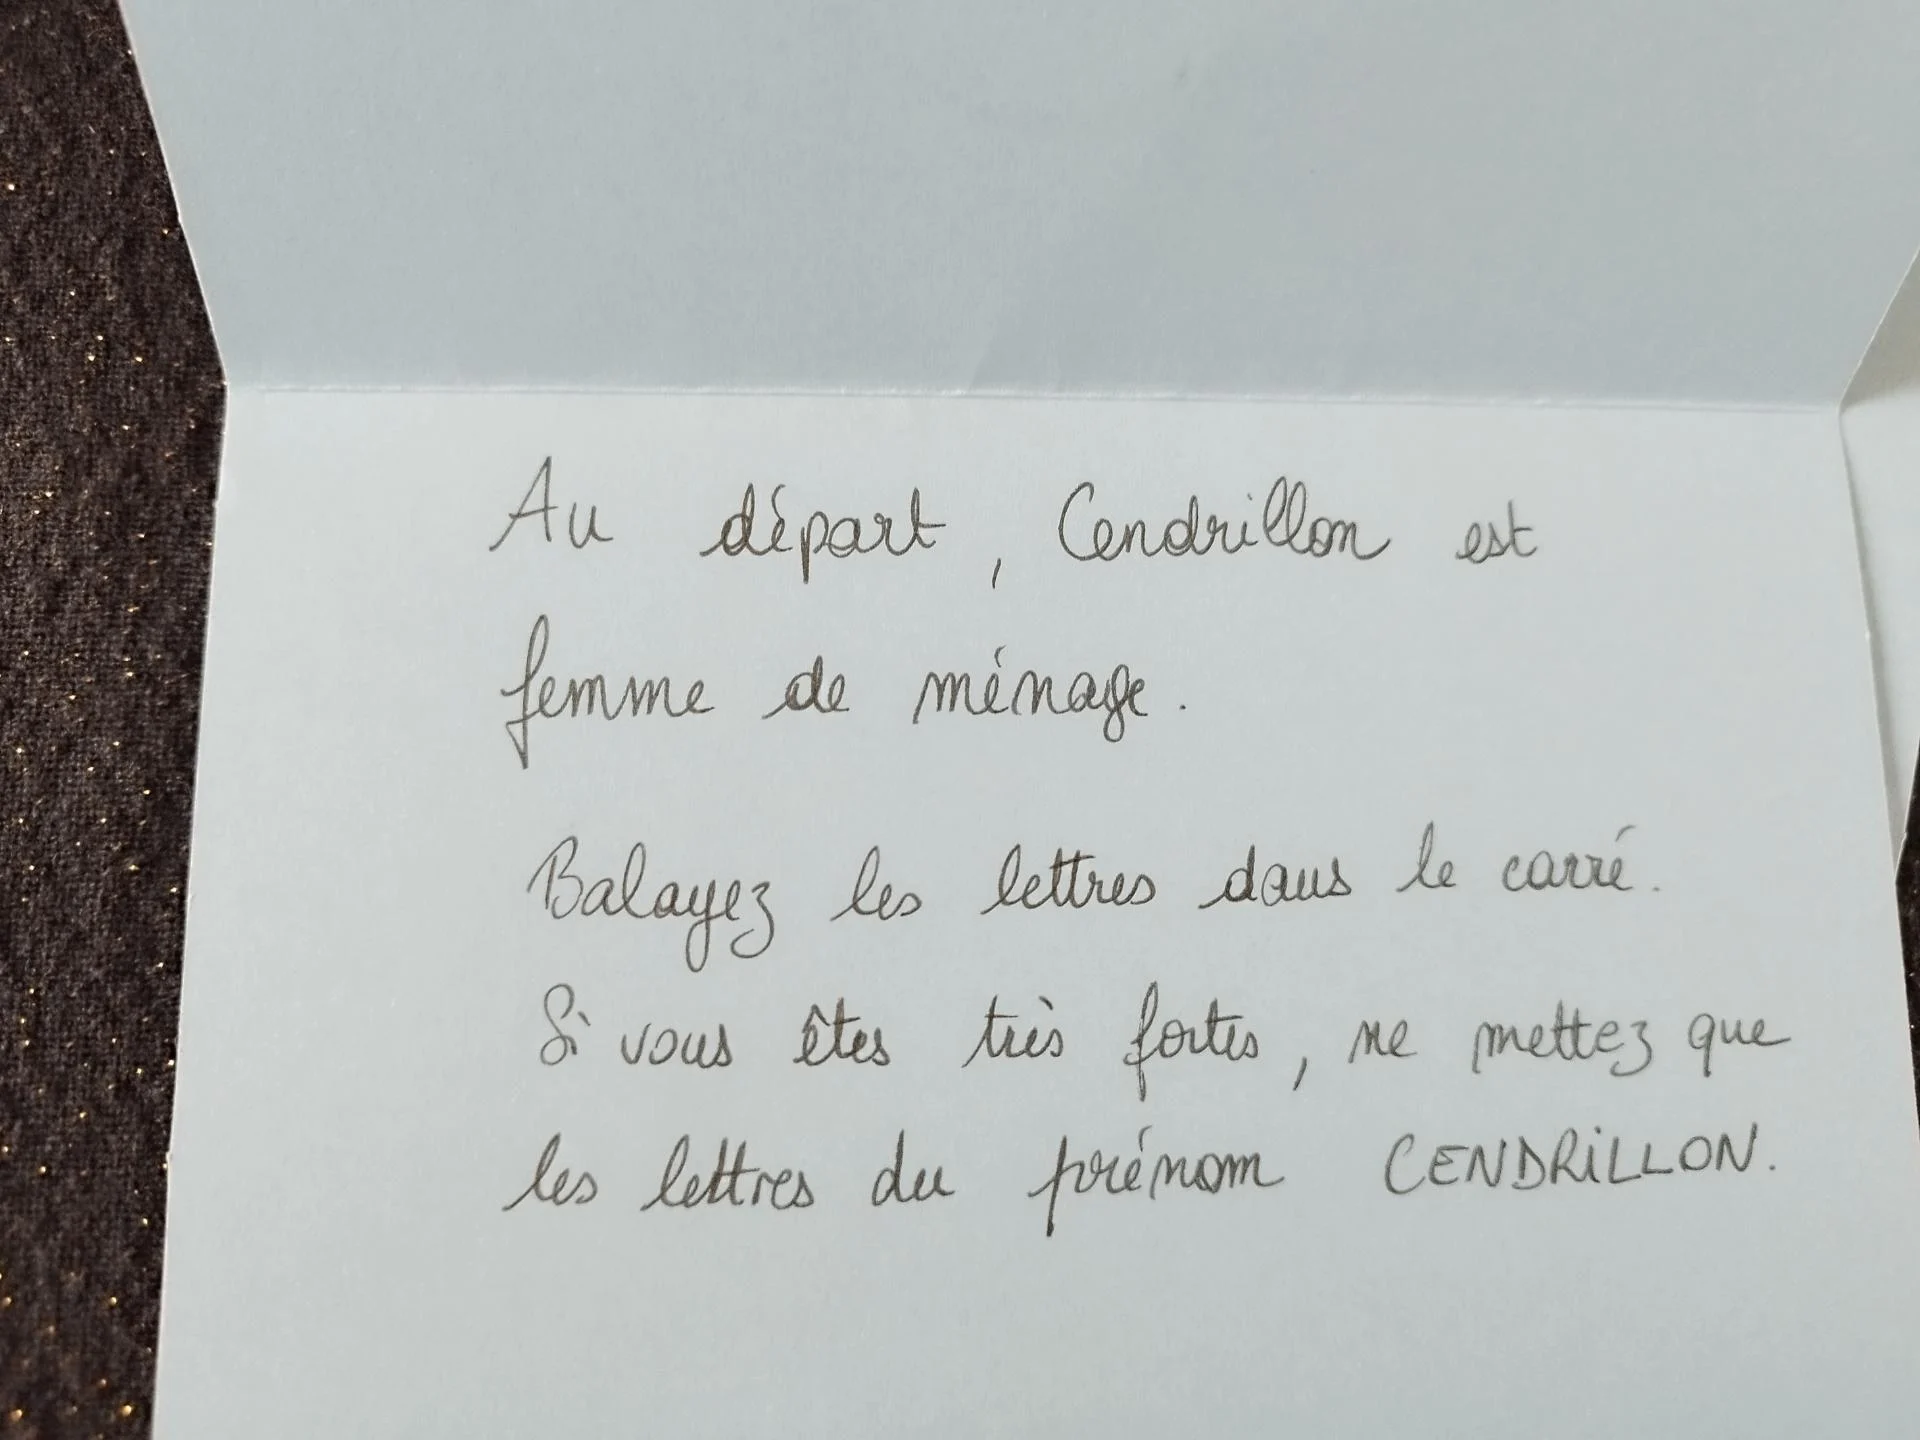 Au départ, Cendrillon est
femme de ménage.
Balayez les lettres dans le carré.
Si vous êtes très fortes, ne mettez que
les lettres du prénom CENDRiLLON.